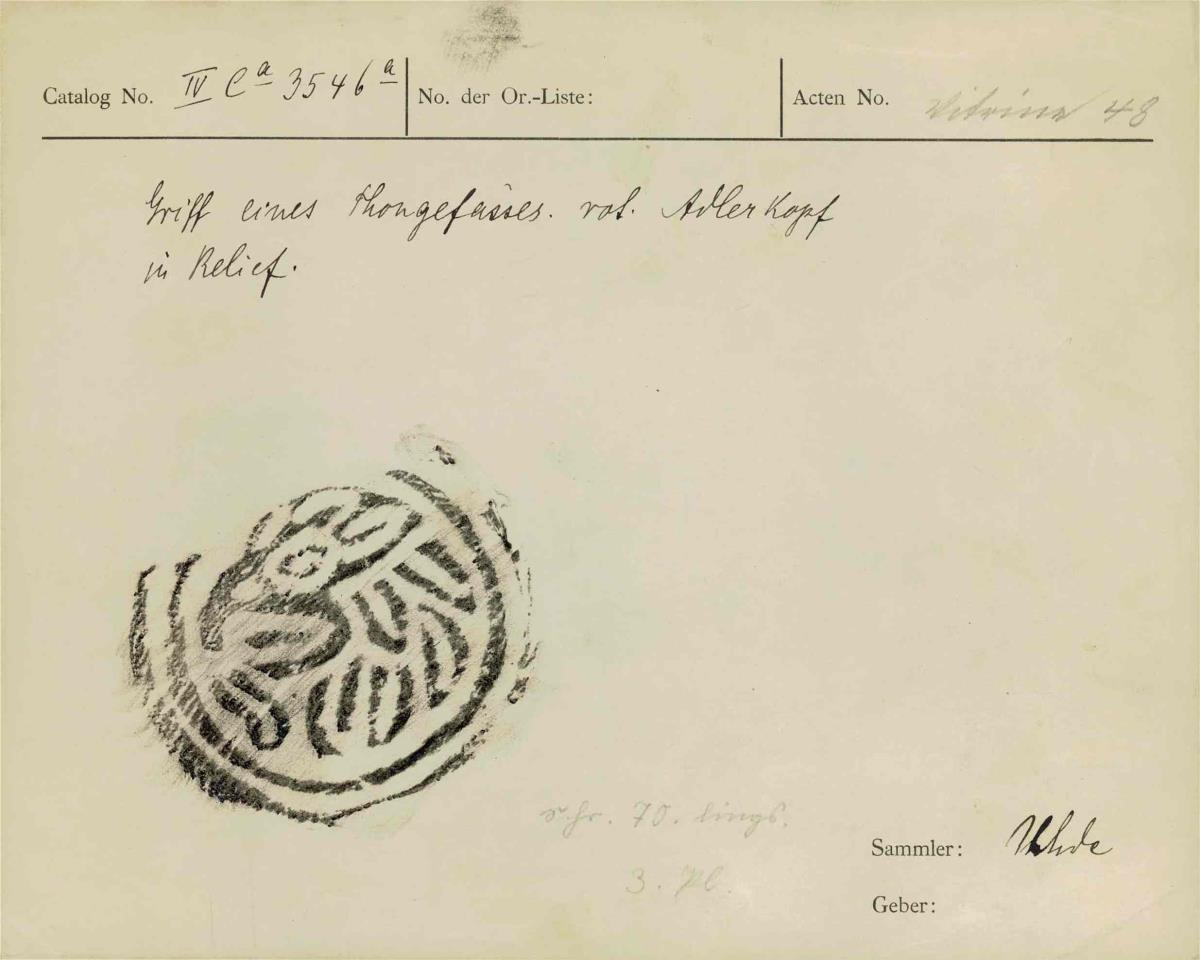 Catalog No. IV Ca 3546a No. der Or.-Liste: Acten No. Vitrine 48
Griff eines Thongefässes. rot. Adlerkopf
in Relief.
70.
Sammler: Uhde
3. Pl.
Geber: